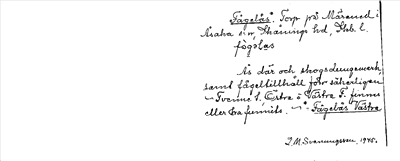 Fågelås. Torp på Mårarud i
Åsaka sn, Skånings hd, Skb. l.
fòg̀las
Ås där och skogsdungar
samt fågeltillhåll förr säkerligen
– Tvenne t. Östra o Västra F. finnes
eller ha funnits. – Fågelås Västra
J. M. Svenungsson, 1945.